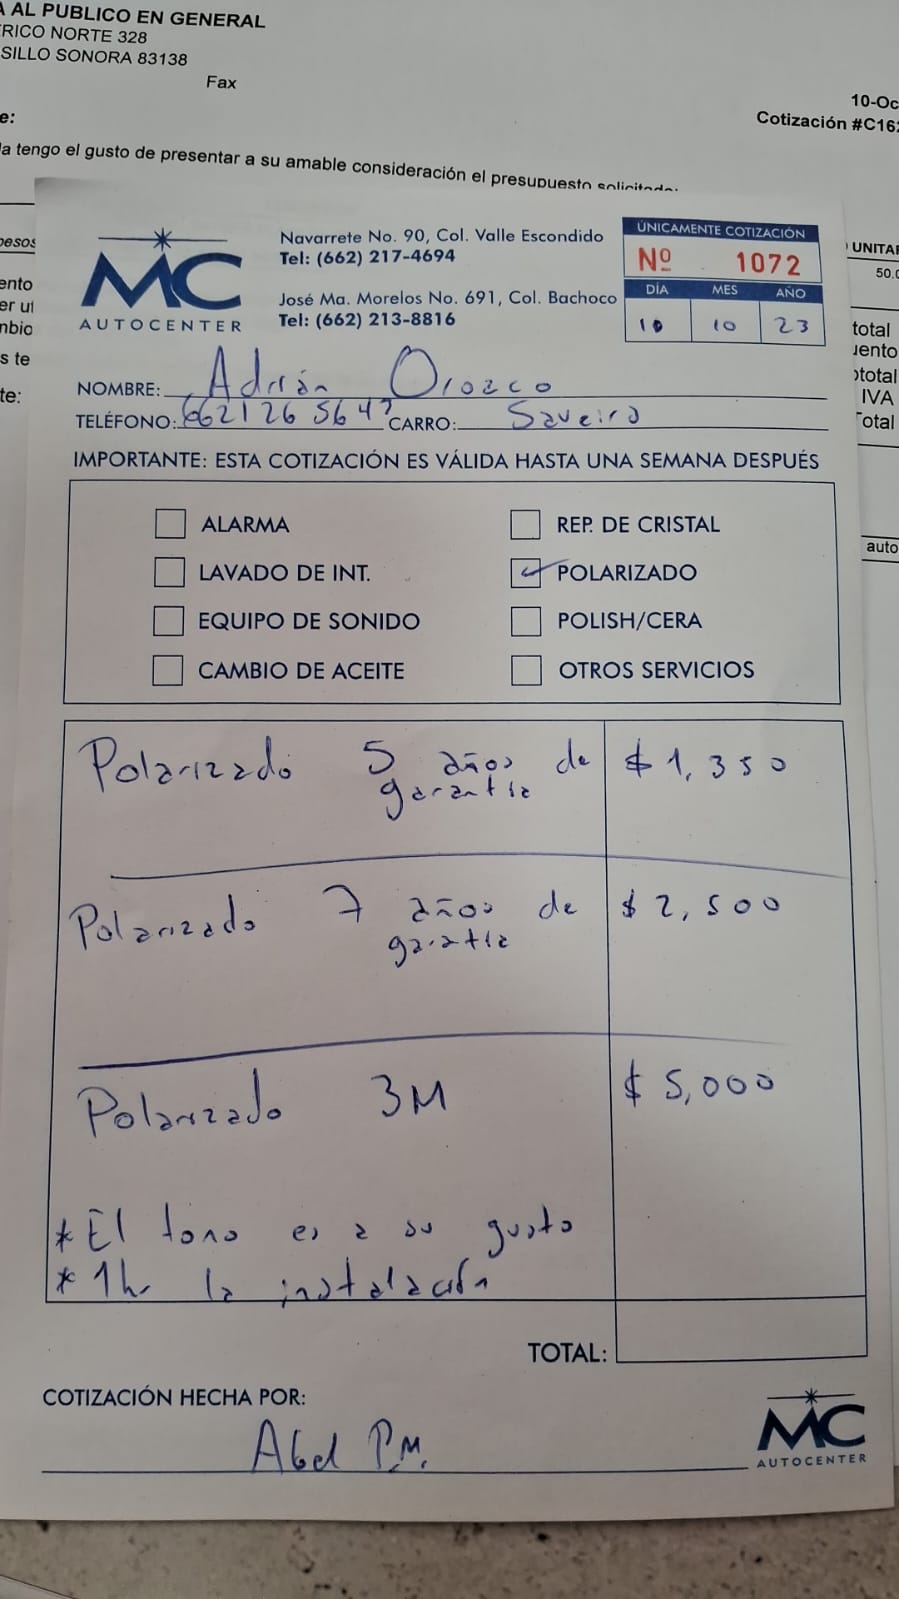 A AL PUBLICO EN GENERAL
ERICO NORTE 328
SILLO SONORA 83138
Fax
10-Oc
Cotización #C162
e:
la tengo el gusto de presentar a su amable consideración el presupuesto solicitado:
pesos
UNITAR
ento
50.0
er ut
mbio
s te
te:
total
uento
ototal
IVA
Total
auto
MC
AUTOCENTER
Navarrete No. 90, Col. Valle Escondido
Tel: (662) 217-4694
José Ma. Morelos No. 691, Col. Bachoco
Tel: (662) 213-8816
ÚNICAMENTE COTIZACIÓN
Nº 1072
DÍA MES AÑO
10 10 23
NOMBRE: Adrián Orozco
TELÉFONO: 6621265647 CARRO: Saveiro
IMPORTANTE: ESTA COTIZACIÓN ES VÁLIDA HASTA UNA SEMANA DESPUÉS
ALARMA REP. DE CRISTAL
LAVADO DE INT. POLARIZADO
EQUIPO DE SONIDO POLISH/CERA
CAMBIO DE ACEITE OTROS SERVICIOS
Polarizado 5 años de $1,350
garantia
Polarizado 7 años de $2,500
garatia
Polarizado 3M $5,000
* El tono es a su gusto
* 1hr la instalación
TOTAL:
COTIZACIÓN HECHA POR:
Abel P.M.
MC
AUTOCENTER